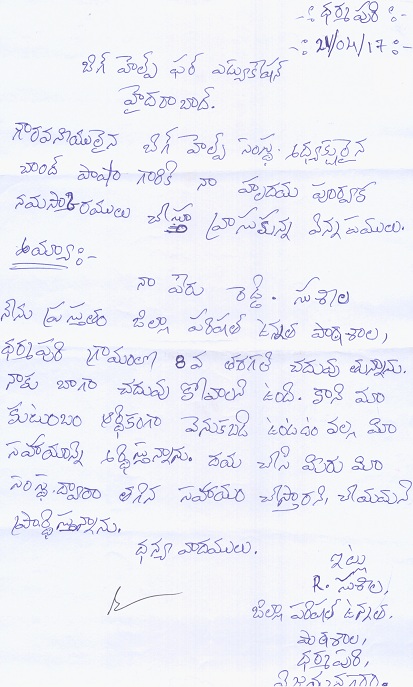 -: ధర్మపురి :-
-: 21/04/17 :-
బిగ్ హెల్ప్ ఫర్ ఎడ్యుకేషన్
హైదరాబాద్.
గౌరవనీయులైన బిగ్ హెల్ప్ సంస్థ. అధ్యక్షులైన
చాంద్ పాషా గారికి నా హృదయ పూర్వక
నమస్కారములు చేస్తూ వ్రాసుకున్న విన్నపములు.
అయ్యా :-
నా పేరు రెడ్డి. సుశీల
నేను ప్రస్తుతం జిల్లా పరిషత్ ఉన్నత పాఠశాల,
ధర్మపురి గ్రామంలో 8వ తరగతి చదువు తున్నాను.
నాకు బాగా చదువు కోవాలని ఉంది. కాని మా
కుటుంబం ఆర్థికంగా వెనుకబడి ఉండడం వల్ల మీ
సహాయాన్ని అర్థిస్తున్నాను. దయ చేసి మీరు మీ
సంస్థ ద్వారా తగిన సహాయం చేస్తారని, చేయమని
ప్రార్థిస్తున్నాను.
ధన్య వాదములు.
ఇట్లు
R. సుశీల,
జిల్లా పరిషత్ ఉన్నత.
పాఠశాల,
ధర్మపురి,
విజయనగరం.